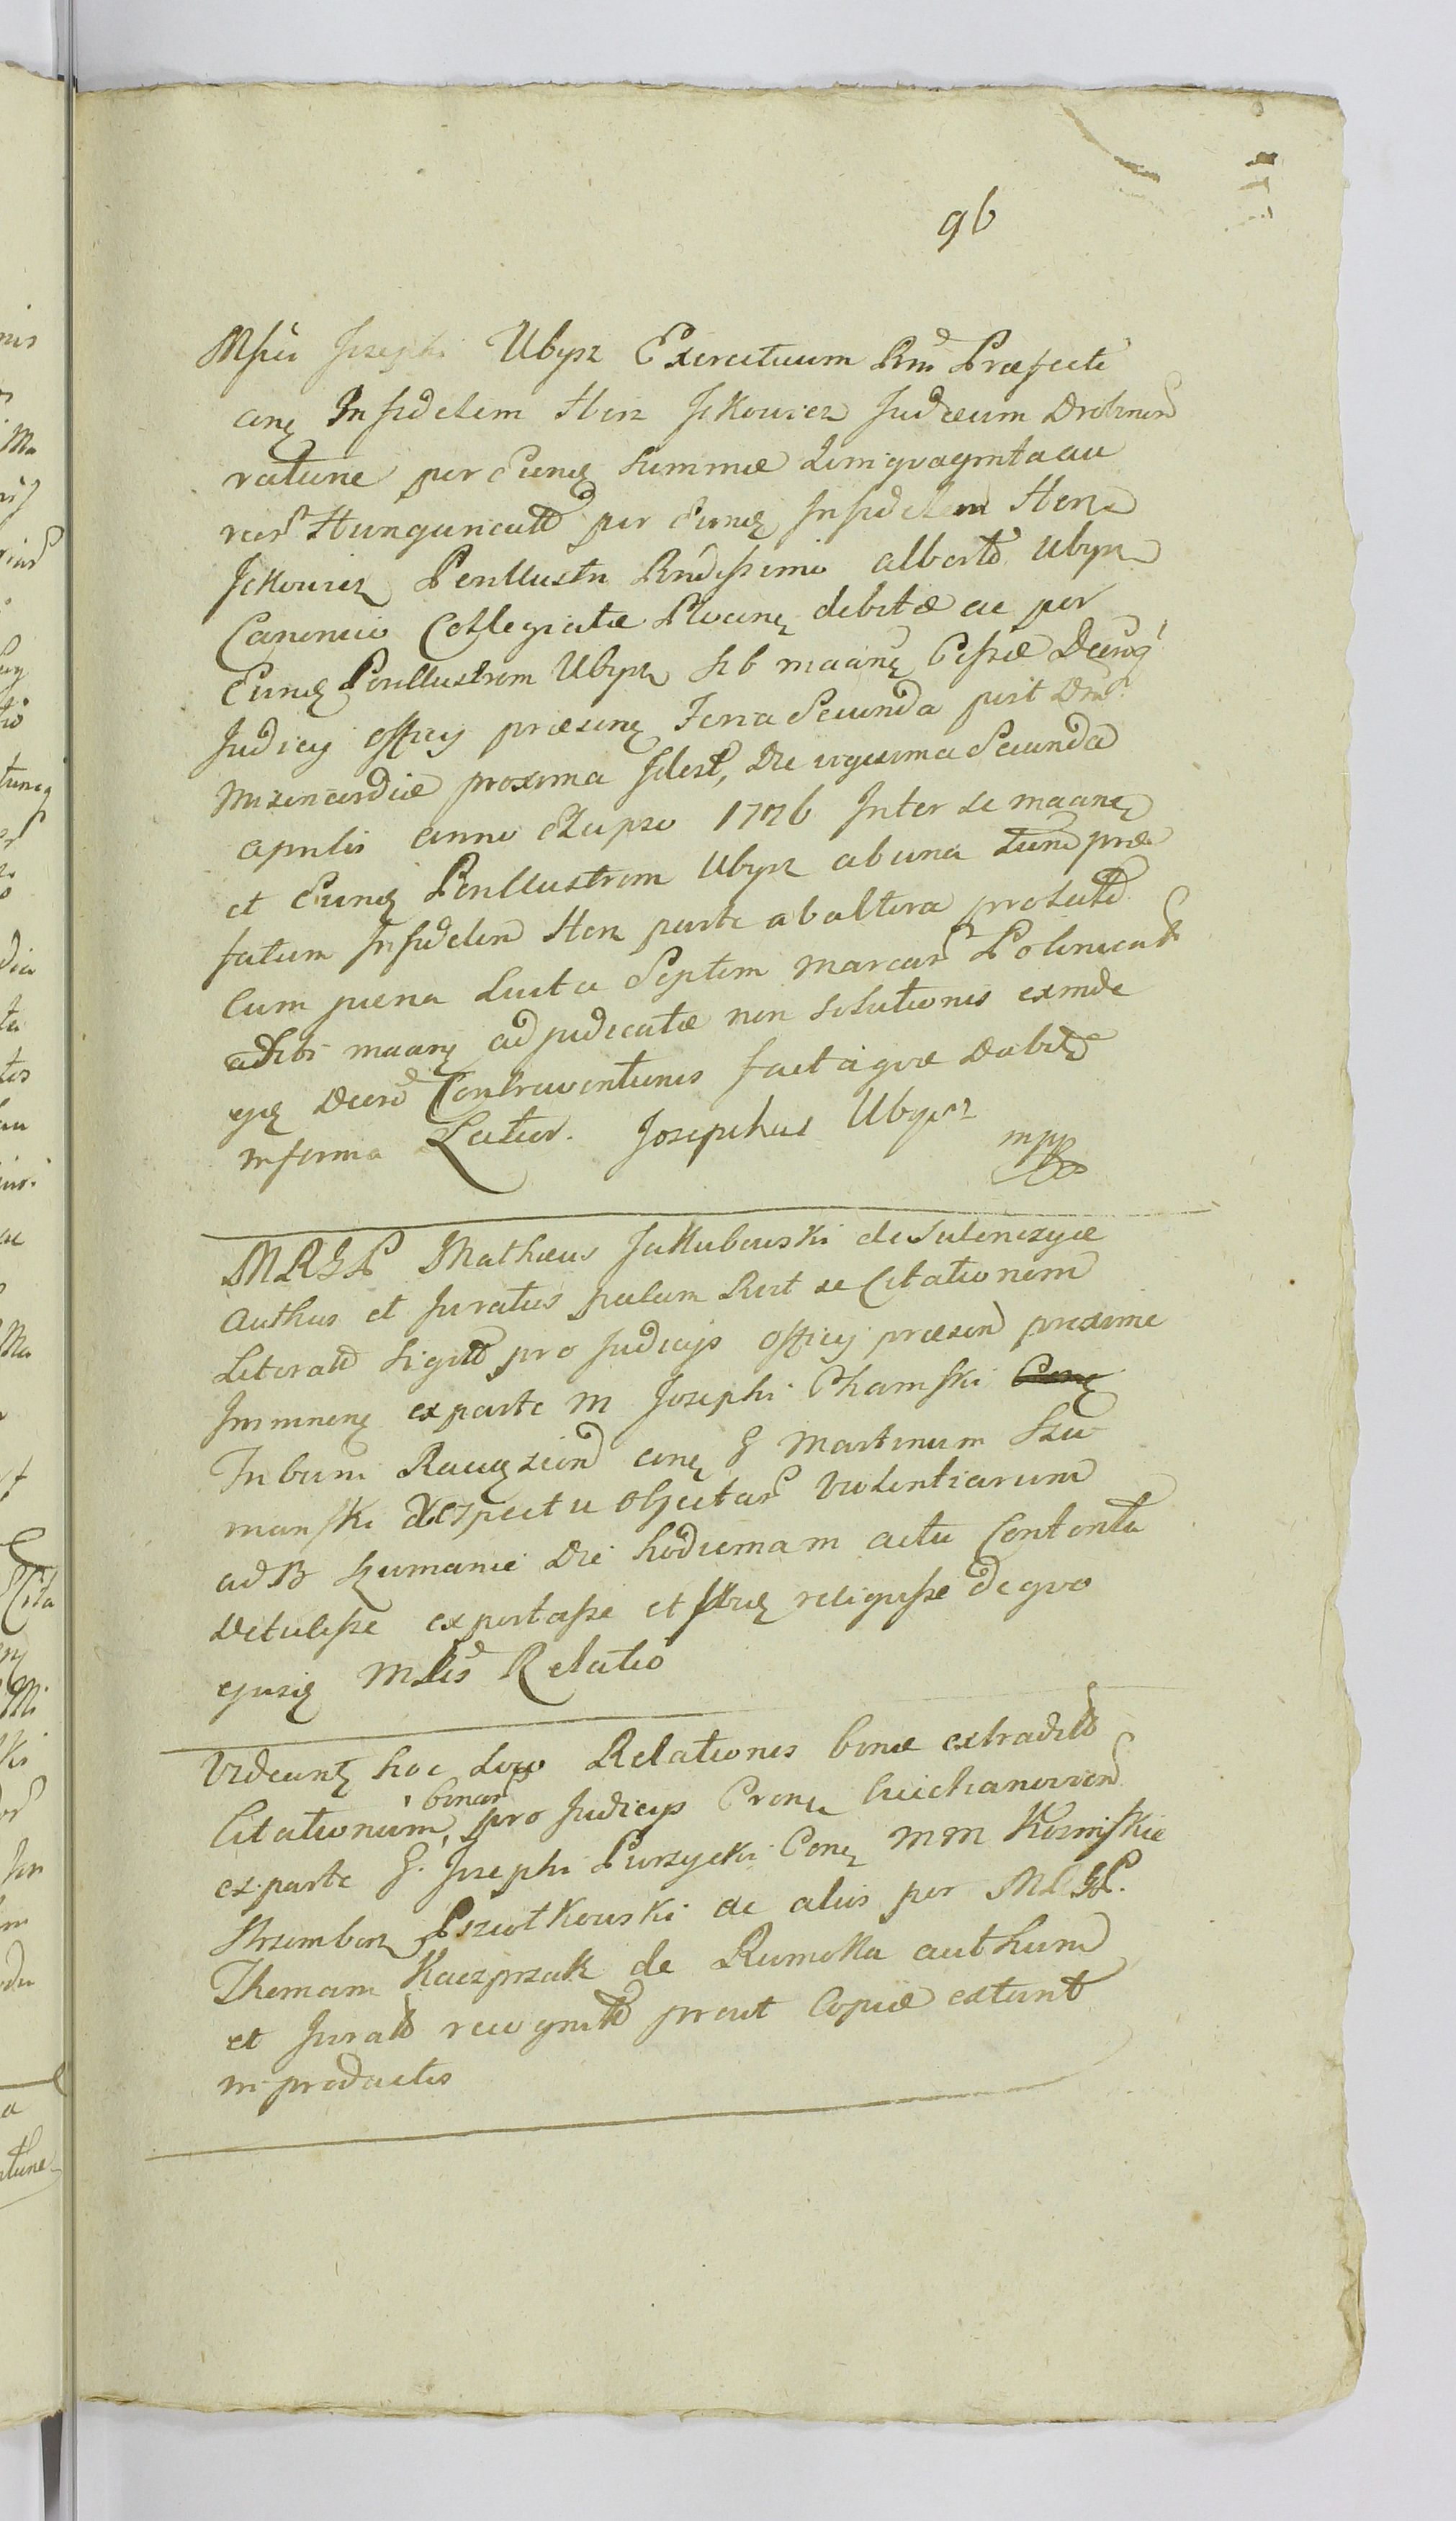 96
Msci Josephi Ubysz Exercituum Rnis Præfecti
cong Infidelem Herz Ickowicz Judæum Drobinen
ratione per Eund Summæ Quinquaginta au
reor Hungaricall per Eund Infidelem Herz
Ickowicz Perillustri Rndissimo Alberto Ubysz
Canonico Collegiatæ Plocen debitæ ac per
Eund Perillustrem Ubysz Sib maanq Cessæ Decrog
Judicy Officy præsenq Feria Secunda post Dnic
Misericordiæ proxima Idest, Die vigesima Secunda
Aprilis anno Elapso 1776 Inter se maanq
et Eund Perillustrem Ubysz ab una Tum præ
fatum Infidelem Herz parte ab altera prolati
Cum pæna Luita Septem Marcar Polonicali
adSibi maanq adjudicatæ non Solutionis exinde
ejq Decre Contraventionis factaque Dabit
in forma Latior. Josephus Ubysz
mpp
MRGP Mathæus Jakubowski de Sulenczyce
Authus et Juratus palam Rcit se Citationem
Literall Sigill pro Judicys Officy præsen proxime
Imminenq ex parte M Josephi Chamski
Tribuni Raciązien conq G Martinum Szu
manski Respectu Objectar Violentiarum
ad B Szumanie Die hodierna in actu Contenta
Detulisse exportasse et Ibid reliquisse de quo
ejusq Mlis Relatio
Videantq hoc Loco Relationes binæ extradit
Citationum binar pro Judicys Crenq Ciechanovien
ex parte G. Josephi Purzycki Conq MM Kozmiskie
Krzembosz Psziotkowski ac alios per MLGP.
Thomam Kaczprzak de Rumoka authum
et Jurall recognitt prout Copiæ extant
in productis